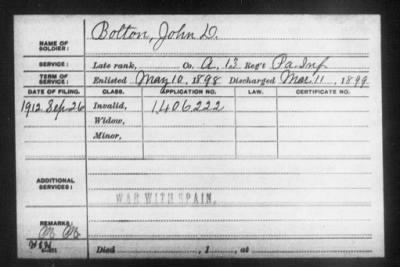 NAME OF SOLDIER: Bolton, John D.
SERVICE: Late rank, Co. A, 13 Reg't Pa. Inf.
TERM OF SERVICE: Enlisted May 10, 1898 Discharged Mar. 11, 1899
DATE OF FILING. CLASS. APPLICATION NO. LAW. CERTIFICATE NO.
1912 Sep. 26 Invalid, 1406222
Widow,
Minor,
ADDITIONAL SERVICES:
WAR WITH SPAIN.
REMARKS:
Died , 1 , at